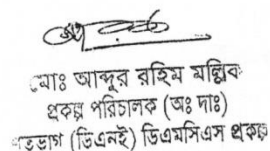 মোঃ আব্দুর রহিম মল্লিক
প্রকল্প পরিচালক (অঃ দাঃ)
(ডিএনই) ডিএমসিএস প্রকল্প